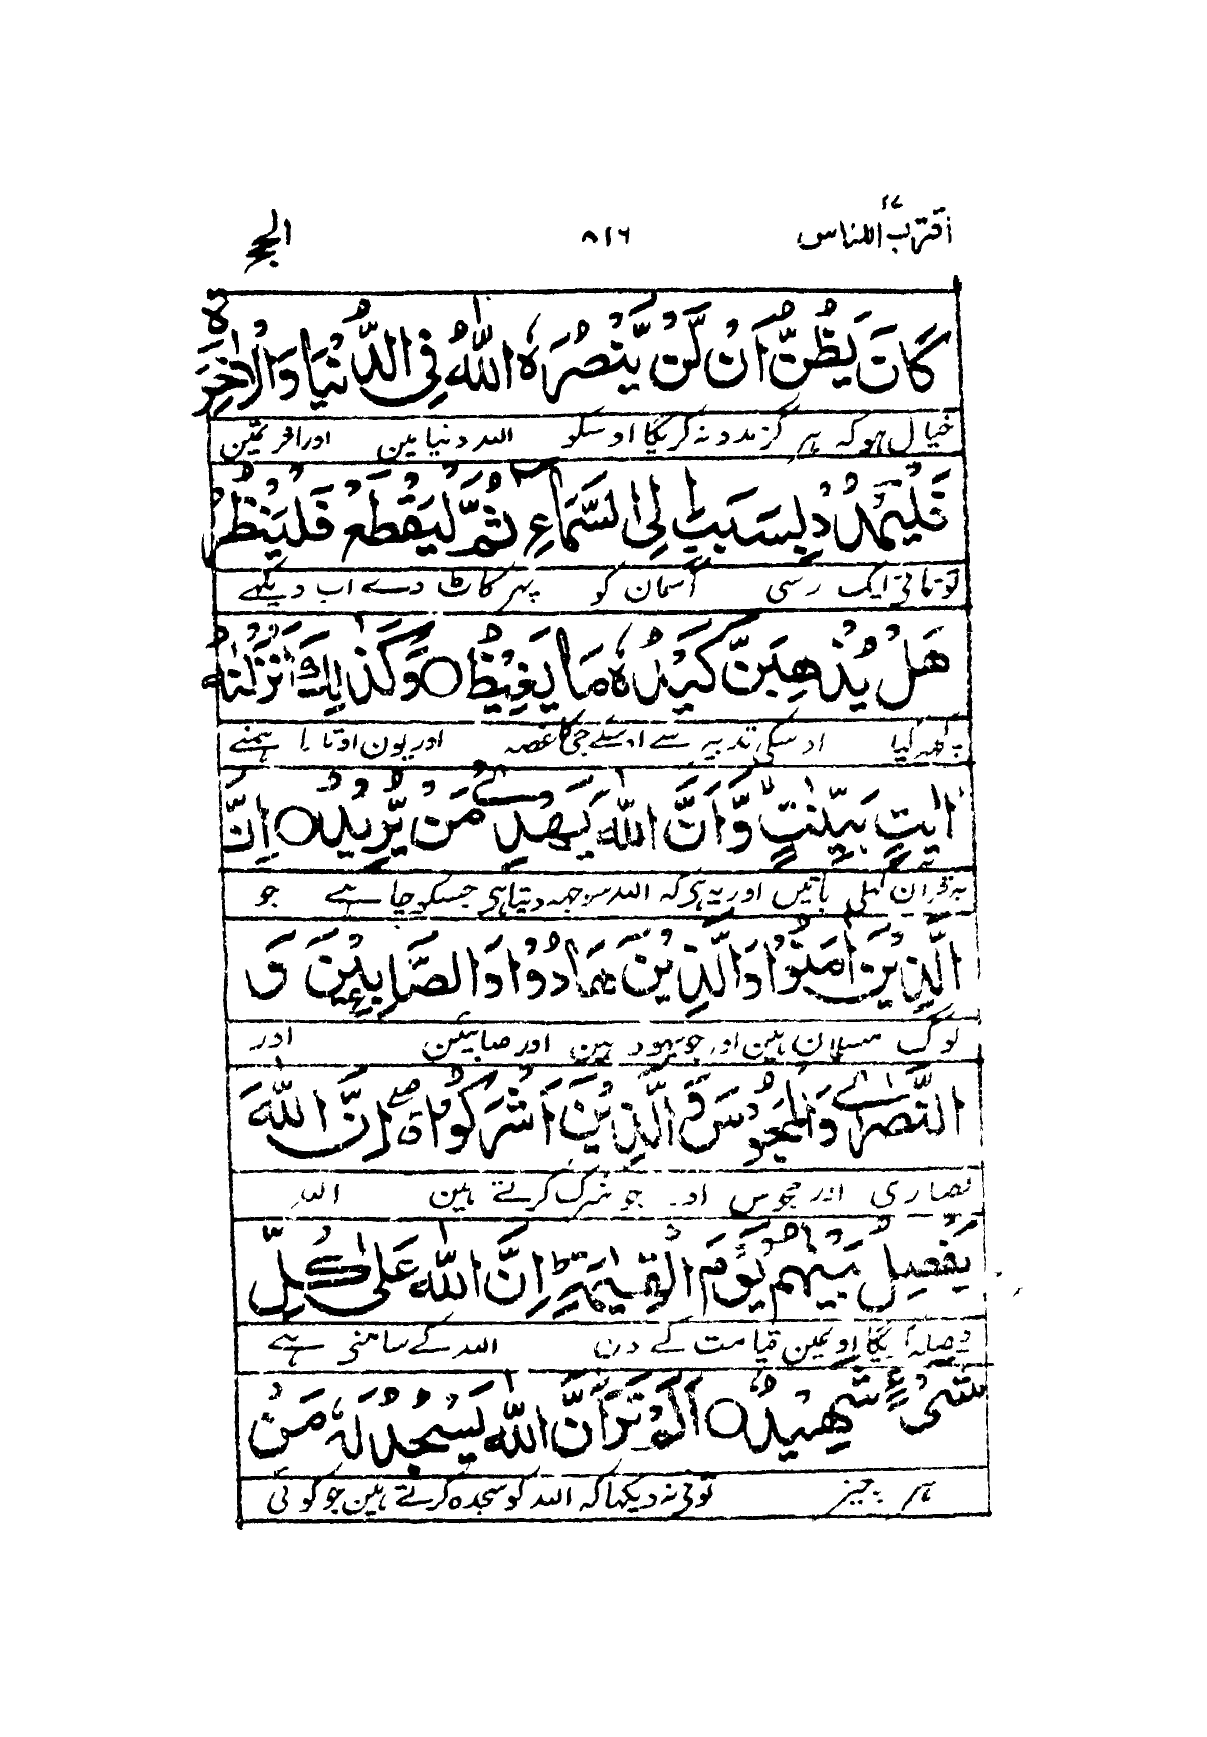 اقترب للناس ١٧ ٨١٦ الحج
كَانَ يَظُنُّ اَنْ لَّنْ يَّنْصُرَهُ اللّٰهُ فِى الدُّنْيَا وَالْاٰخِرَةِ
خیال ہو کہ ہرگز مدد نہ کریگا اوسکو اللہ دنیا مین اور اخر ئمین
فَلْيَمْدُدْ بِسَبَبٍ اِلَى السَّمَآءِ ثُمَّ لْيَقْطَعْ فَلْيَنْظُرْ
تو تانی ایک رسی آسمان کو پہر کاٹ دے اب دیکہے
هَلْ يُذْهِبَنَّ كَيْدُهٗ مَا يَغِيْظُ ○ وَكَذٰلِكَ اَنْزَلْنٰهُ
کچہہ گیا اوسکی تدبیر سے اوسکے جی کا غصہ اور یون اوتارا ہمنے
اٰيٰتٍۢ بَيِّنٰتٍ وَّاَنَّ اللّٰهَ يَهْدِىْ مَنْ يُّرِيْدُ ○ اِنَّ
یہ قران کہلی باتین اور یہ ہی کہ اللہ سوجہہ دیتا ہی جسکو چاہے جو
الَّذِيْنَ اٰمَنُوْا وَالَّذِيْنَ هَادُوْا وَالصَّابِئِيْنَ وَ
لوگ مسلمان ہین اور جو یہود ہین اور صابئین اور
النَّصٰرٰى وَالْمَجُوْسَ وَالَّذِيْنَ اَشْرَكُوْٓا اِنَّ اللّٰهَ
نصاری اور مجوس اور جو شرک کرتے ہین اللہ
يَفْصِلُ بَيْنَهُمْ يَوْمَ الْقِيٰمَةِ ؕ اِنَّ اللّٰهَ عَلٰى كُلِّ
فیصلہ کریگا اونمین قیامت کے دن اللہ کے سامنی ہے
شَىْءٍ شَهِيْدٌ ○ اَلَمْ تَرَ اَنَّ اللّٰهَ يَسْجُدُ لَهٗ مَنْ
ہر چیز تونی نہ دیکہا کہ اللہ کو سجدہ کرتے ہین جو کوئی